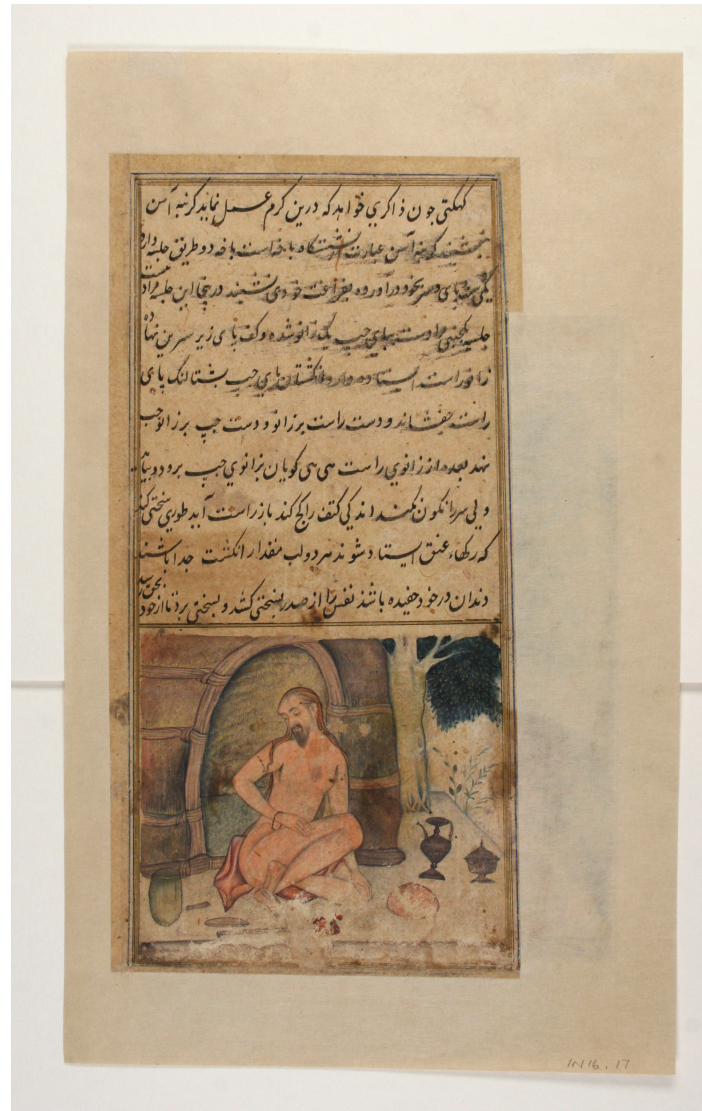 کهکتی جون ذاکری خواهد که درین کرم عمل نماید کرنبه آسن
بنشیند کرنبه آسن عبارت از نشستگاه با خداست باخه دو طریق جلسه دارد
یکی پای و سر بخود درآورده بفراغت خود می نشیند درینجا این جلسه مراد نیست
جلسه مراد ست بپای چپ یک زانو شده و کف پای زیر سرین نهاده
زانو راست ایستاده دارد و انکشتان پای چپ بشتالنک پای
راست چفشاند و دست راست بر زانو و دست چپ بر زانو چپ
نهد بعده از زانوی راست هی هی کویان بزانوی چپ برود و بیاید
ولی سر را نکون نکند اندکی کتف را کج کند باز راست آید طوری سختی کند
که رکهاء عنق ایستاد شوند هر دو لب مقدار انکشت جدا باشند
دندان در خود چفیده باشد نفس را از صدر بسختی کشد و بسختی برد تا از خود بخود رسد
IN 16.17